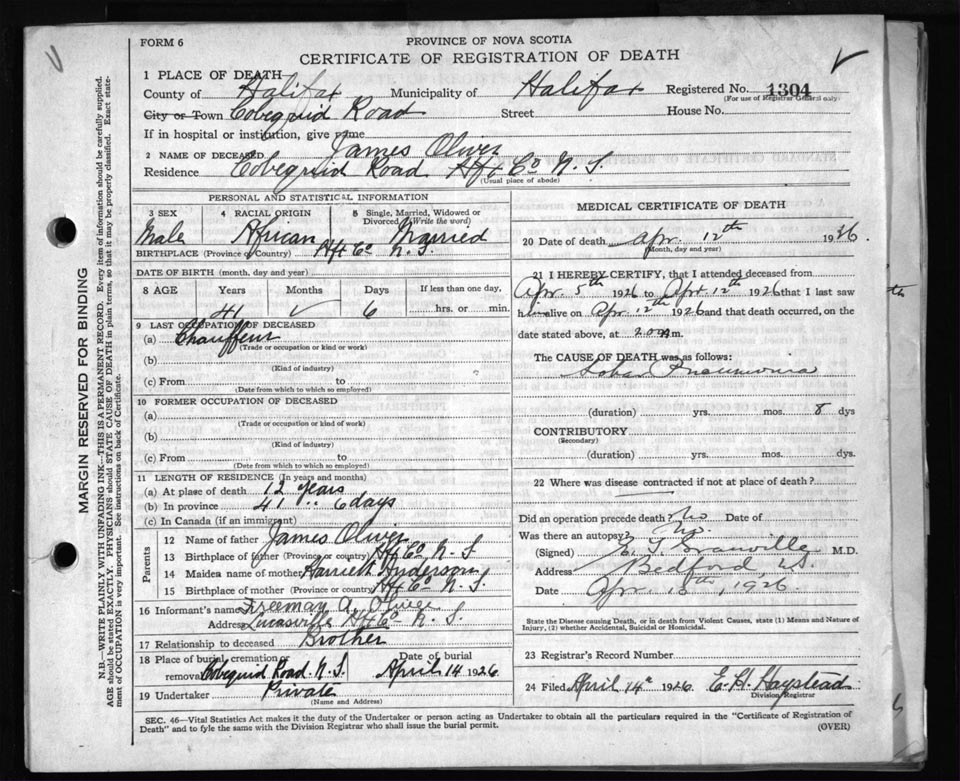 FORM 6
PROVINCE OF NOVA SCOTIA
CERTIFICATE OF REGISTRATION OF DEATH
MARGIN RESERVED FOR BINDING
N.B.—WRITE PLAINLY WITH UNFADING INK—THIS IS A PERMANENT RECORD. Every item of information should be carefully supplied.
AGE should be stated EXACTLY. PHYSICIANS should STATE CAUSE OF DEATH in plain terms, so that it may be properly classified. Exact state-
ment of OCCUPATION is very important. See instructions on back of Certificate.
1 PLACE OF DEATH
County of Halifax Municipality of Halifax Registered No. 1304
(For use of Registrar General only)
City or Town Cobequid Road Street House No.
If in hospital or institution, give name
2 NAME OF DECEASED James Oliver
Residence Cobequid Road Hfx Co N. S.
(Usual place of abode)
PERSONAL AND STATISTICAL INFORMATION
3 SEX Male
4 RACIAL ORIGIN African
5 Single, Married, Widowed or Divorced (Write the word) Married
BIRTHPLACE (Province or Country) Hfx Co N. S.
DATE OF BIRTH (month, day and year)
8 AGE Years Months Days If less than one day,
41 ✓ 6 hrs. or min.
9 LAST OCCUPATION OF DECEASED
(a) Chauffeur
(Trade or occupation or kind of work)
(b)
(Kind of industry)
(c) From to
(Date from which to which so employed)
10 FORMER OCCUPATION OF DECEASED
(a)
(Trade or occupation or kind of work)
(b)
(Kind of industry)
(c) From to
(Date from which to which so employed)
11 LENGTH OF RESIDENCE (In years and months)
(a) At place of death 12 years
(b) In province 41 " 6 days
(c) In Canada (if an immigrant)
Parents
12 Name of father James Oliver
13 Birthplace of father (Province or country) Hfx Co N. S
14 Maiden name of mother Harriett Anderson
15 Birthplace of mother (Province or country) Hfx Co N. S
16 Informant's name Freeman A. Oliver
Address Lucasville Hfx Co N. S.
17 Relationship to deceased Brother
18 Place of burial, cremation or removal Cobequid Road. N. S. Date of burial April 14 1926
19 Undertaker Private
(Name and Address)
MEDICAL CERTIFICATE OF DEATH
20 Date of death Apr. 12th 1926.
(Month, day and year)
21 I HEREBY CERTIFY, that I attended deceased from
Apr. 5th 1926 to Apr. 12th 1926 that I last saw
him alive on Apr. 12th 1926 and that death occurred, on the
date stated above, at m.
The CAUSE OF DEATH was as follows:
Lobar Pneumonia
(duration) yrs. mos. 8 dys
CONTRIBUTORY
(Secondary)
(duration) yrs. mos. dys.
22 Where was disease contracted if not at place of death?
Did an operation precede death? No Date of
Was there an autopsy? No.
(Signed) E. T. Granville M.D.
Address Bedford, N.S.
Date Apr. 13th, 1926.
State the Disease causing Death, or in death from Violent Causes, state (1) Means and Nature of
Injury, (2) whether Accidental, Suicidal or Homicidal.
23 Registrar's Record Number
24 Filed April 14th 1926 E. H. Haystead
Division Registrar
SEC. 46—Vital Statistics Act makes it the duty of the Undertaker or person acting as Undertaker to obtain all the particulars required in the "Certificate of Registration of
Death" and to fyle the same with the Division Registrar who shall issue the burial permit. (OVER)